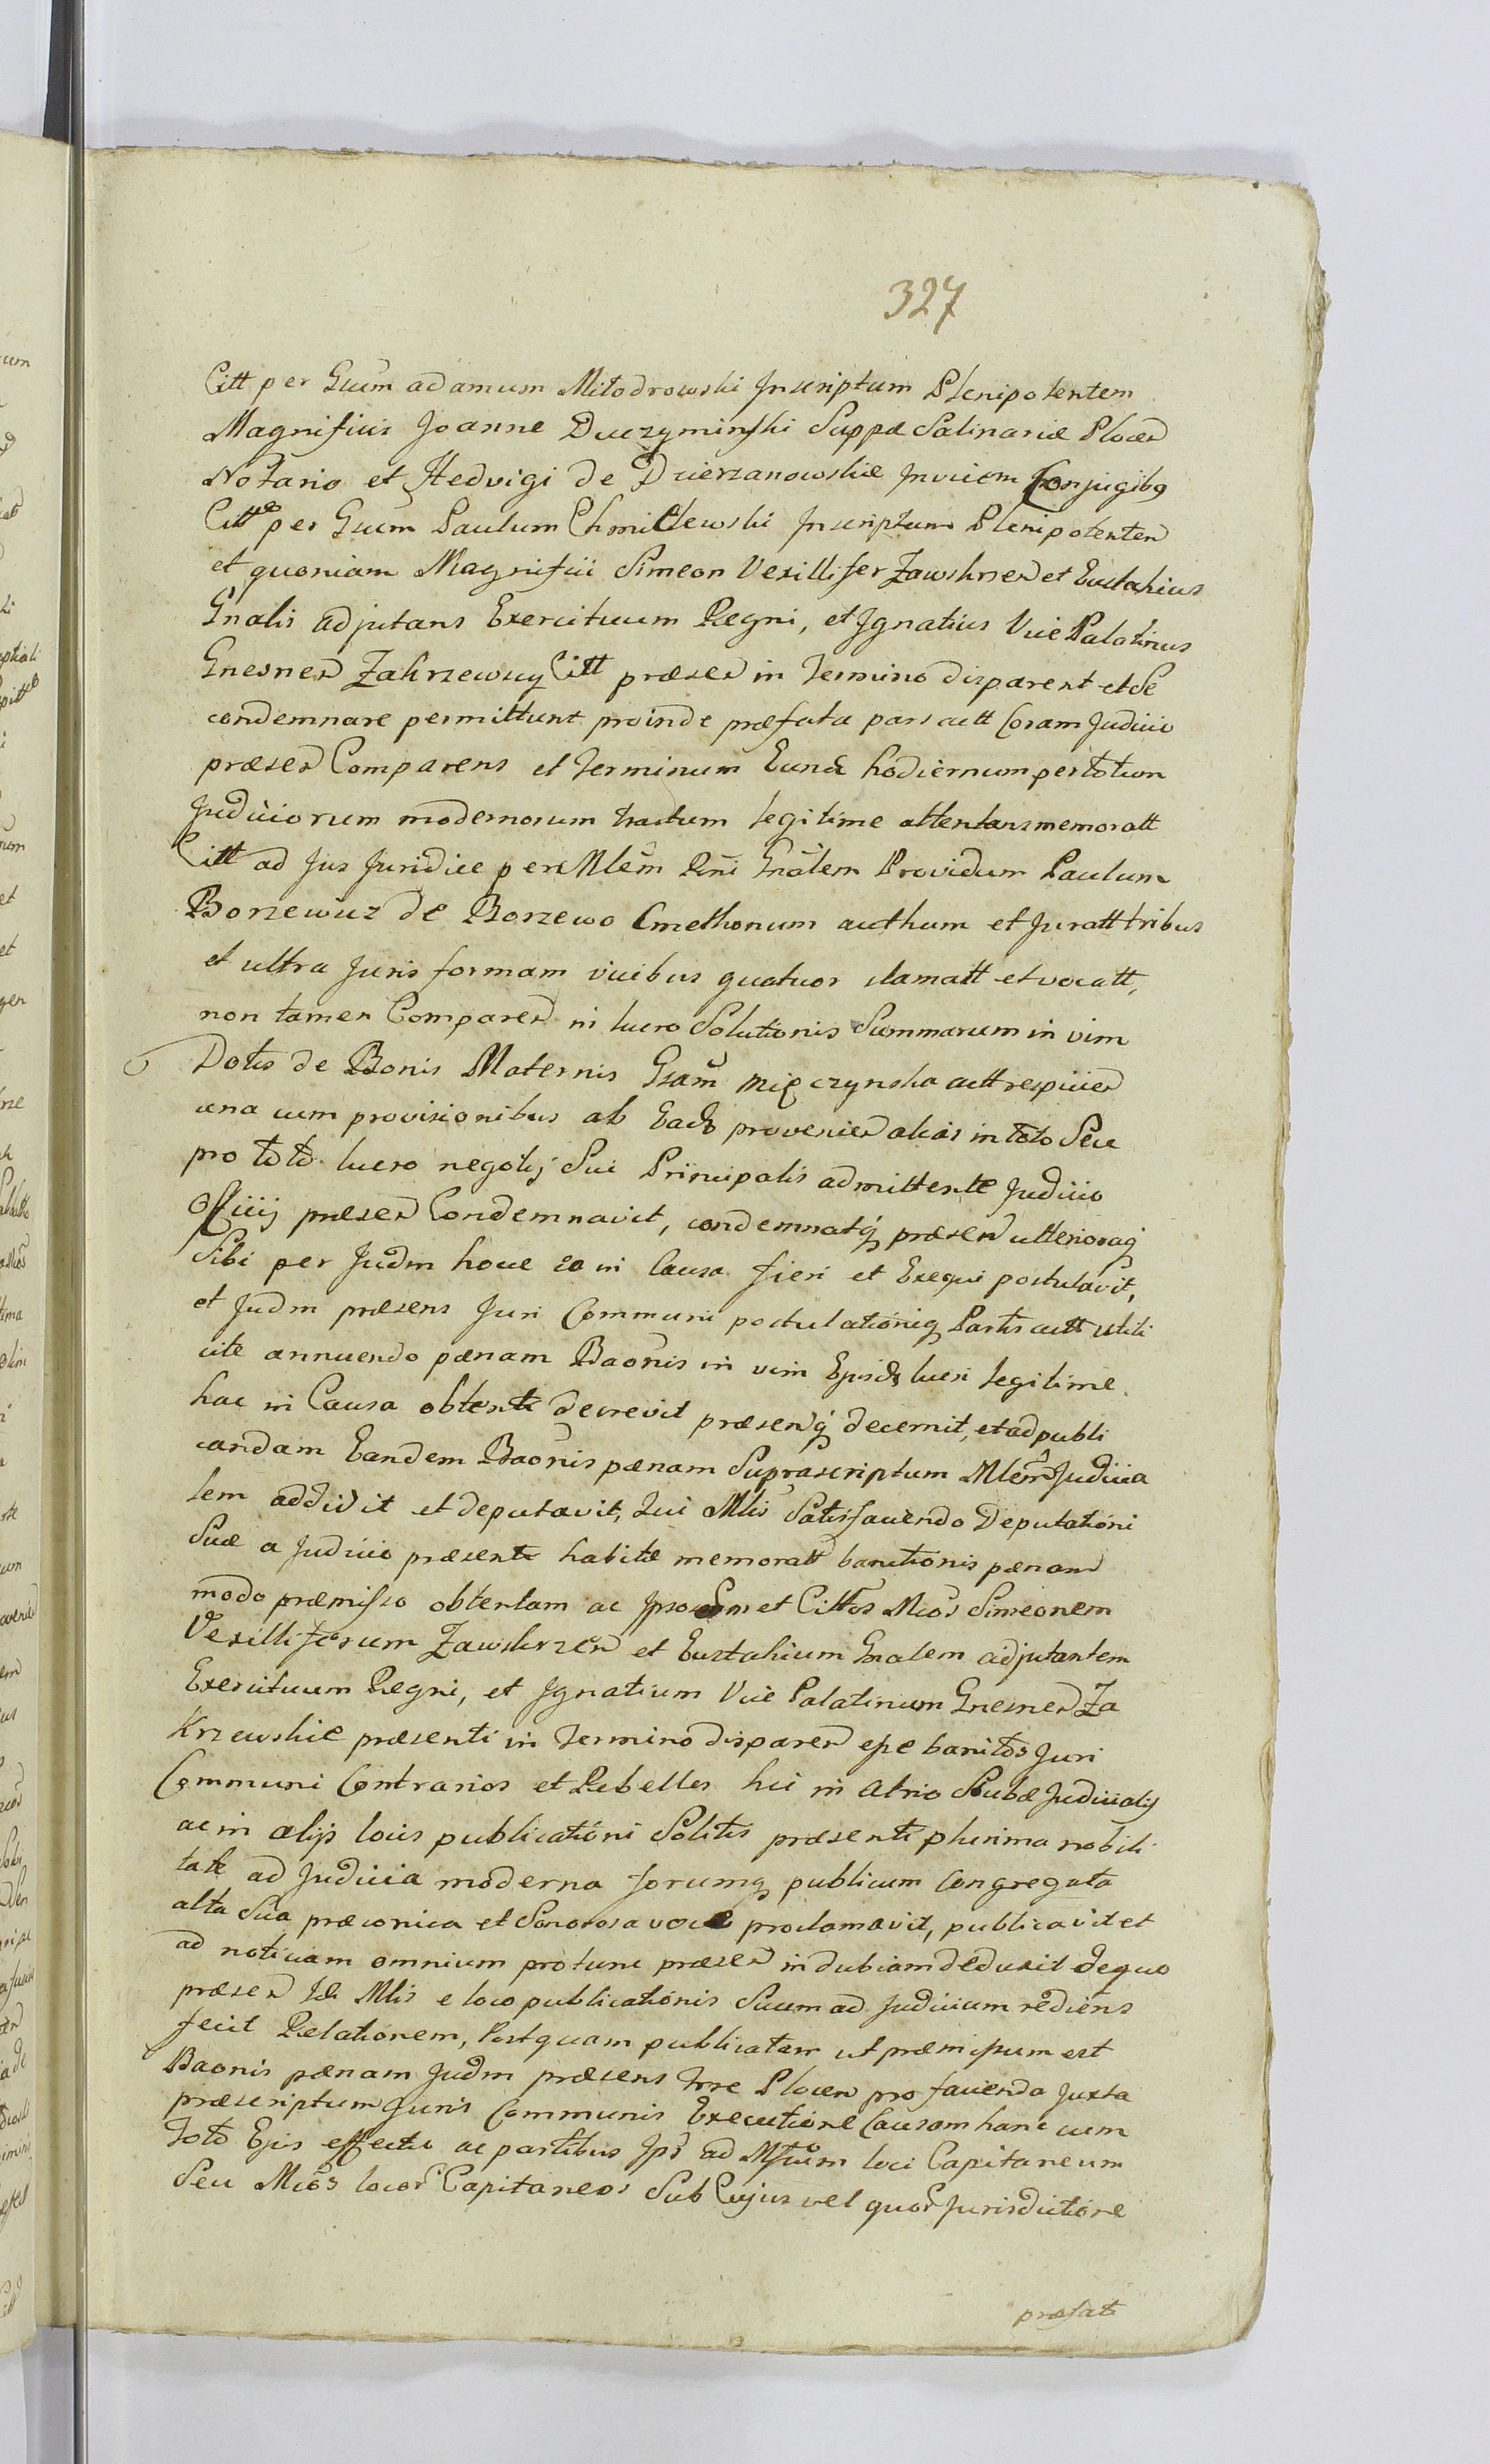 327
Citt per Gsum adamum Mitodrowski Inscriptum Plenipotentem
Magnificis Joanne Duczyminski Suppæ Salinariæ Plocen
Notario et Hedvigi de Dzierzanowskie Invicem Conjugibq
Citt per Gsum Paulum Chmielewski Inscriptum Plenipotenten
et quoniam Magnifici Simeon Vexillifer Zawskrzen et Eustahius
Gnalis adjutans Exercituum Regni, et Ignatius Vice Palatinus
Gnesnen Zakrzewscy Citt præsen in Termino disparent et Se
condemnare permittunt proinde præfata pars actt Coram Judicio
præsen Comparens et Terminum Eund hodiernum per totum
Judiciorum modernorum tractum legitime attentans memoratt
Citt ad Jus Juridice per Mlem Rni Gnalem Providum Paulum
Borzewicz de Borzewo Cmethonum authum et Juratt tribus
et ultra Juris formam vicibus quatuor clamatt et vocatt,
non tamen Comparen in lucro Solutionis Summarum in vim
Dotis de Bonis Maternis Gsam Mięczynska actt respicien
una cum provisionibus ab Ead provenien alias in toto Seu
pro toto lucro negotij Sui Principalis admittente Judicio
Officij præsen Condemnavit, condemnatq præsen ulterioraq
Sibi per Judm hocce ea in Causa fieri et Exequi postulavit,
et Judm præsens Juri Communi postulationiq Partis actt utili
cite annuendo pænam Baonis in vim Ejusd lucri legitime
hac in Causa obtenti decrevit præsenq decernit, et ad publi
candam Eandem Baonis pænam Suprascriptum Mlem Judicia
lem addidit et deputavit, Qui Mlis Satisfaciendo Deputationi
Suæ a Judicio præsenti habitæ memoratt banitionis pænam
modo præmisso obtentam ac Ipsosmet Cittos Mcos Simeonem
Vexilliferum Zawskrzen et Eustahium Gnalem adjutantem
Exercituum Regni, et Ignatium Vice Palatinum Gnesnen Za
Krzewskie præsenti in Termino disparen esse banitos Juri
Communi Contrarios et Rebelles hic in Atrio Stubæ Judicialis
ac in alijs locis publicationi Solitis præsenti plurima nobili
tate ad Judicia moderna forumq publicum Congregata
alta Sua præconica et Sonorosa voce proclamavit, publicavit et
ad noticiam omnium protunc præsen indubiam deduxit de quo
præsen Id Mlis e loco publicationis Suum ad Judicium rediens
fecit Relationem, Postquam publicatam ut præmissum est
Baonis pænam Judm præsens Trre Plocen pro facienda Juxta
præscriptum Juris Communis Executione Causam hanc cum
Toto Ejus effectu ac partibus Ips ad Mfcum loci Capitaneum
Seu Mcos locor Capitaneos Sub Cujus vel quor Jurisdictione
præfat